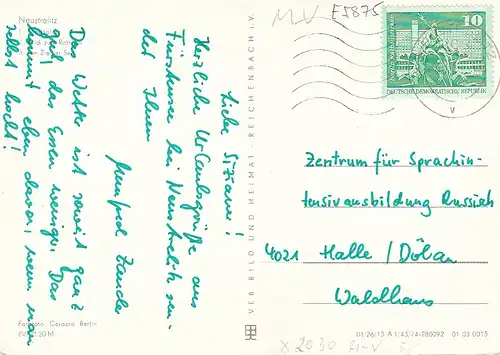 Neustrelitz
Liebe Susanne!
Herzliche Urlaubsgrüße aus
Fürstensee bei Neustrelitz sen-
det Ihnen
Manfred Zander
Das Wetter ist soweit ganz
gut, das Essen weniger. Das
kommt eben davon, wenn man
selbst kocht!
Farbfoto Corazza Berlin
VEB BILD UND HEIMAT REICHENBACH i.V.
M-V E5875
10
DEUTSCHE DEMOKRATISCHE REPUBLIK
v
Zentrum für Sprachin-
tensivausbildung Russisch
4021 Halle/Dölau
Waldhaus
01/26/13 A 1/43/74-280092 01 03 0015